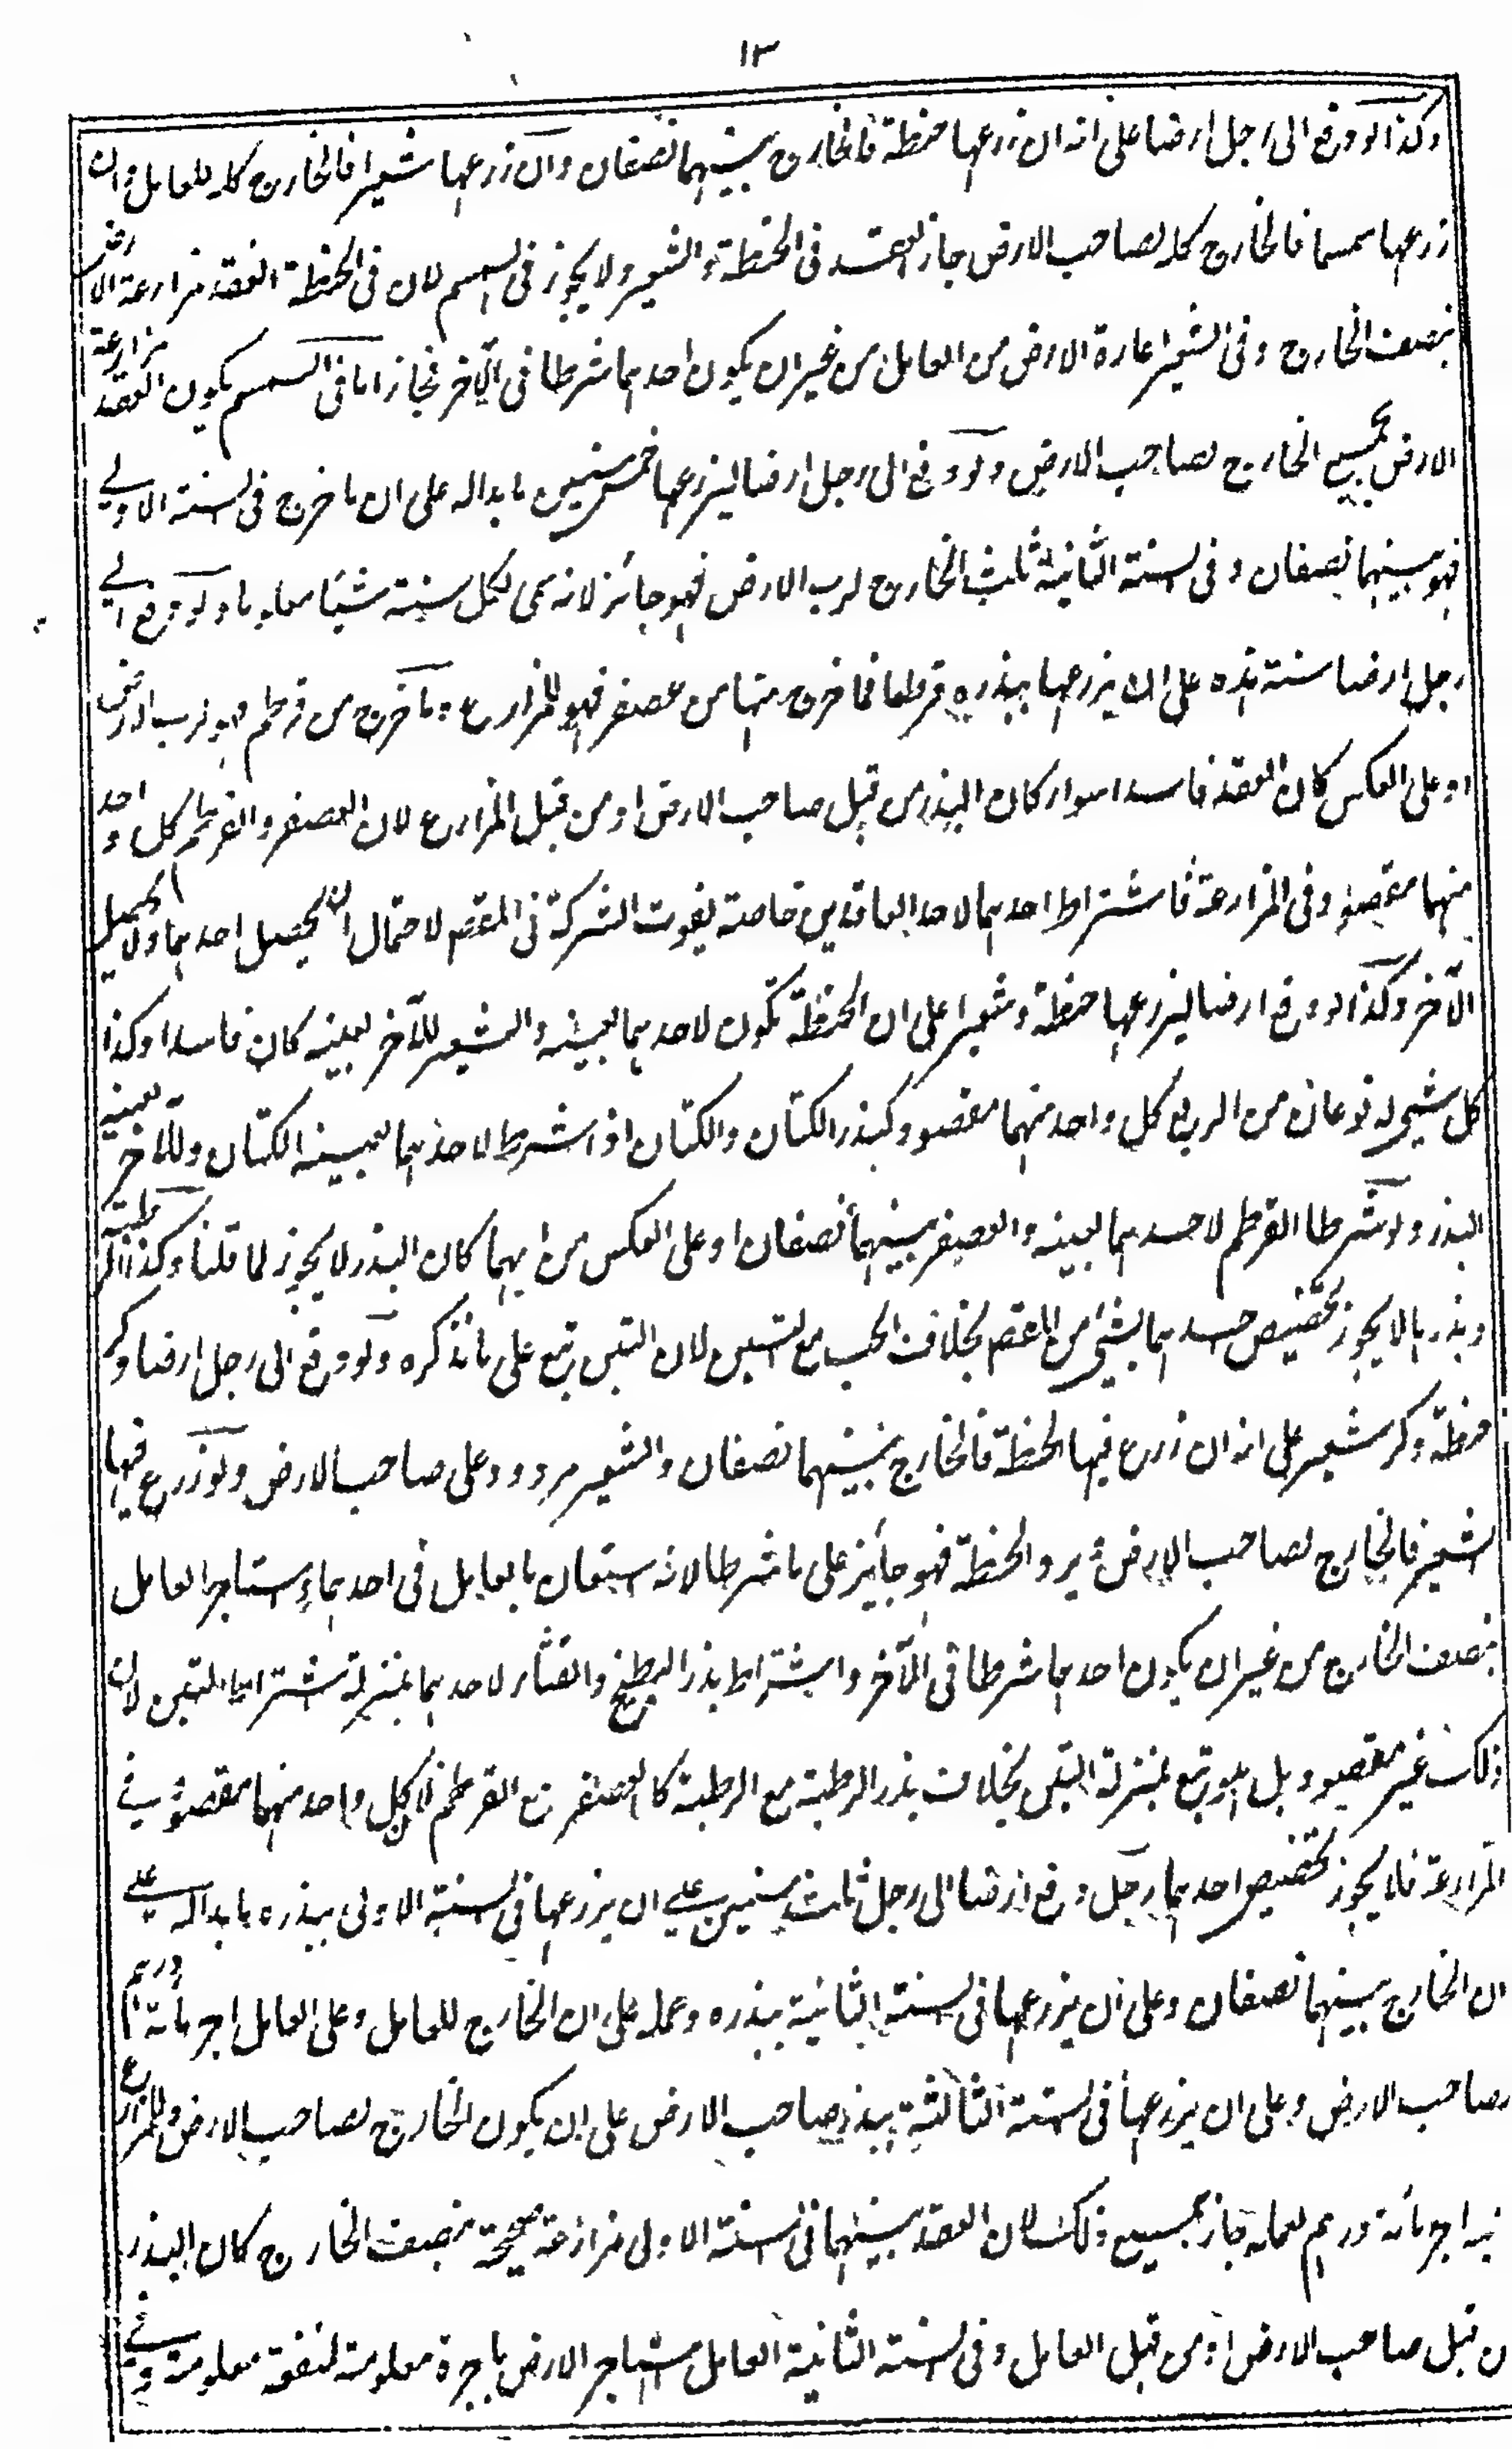 ١٣
وكذا لو دفع الى رجل ارضا على انه ان زرعها حنطة فالخارج بينهما نصفان وان زرعها شعيرا فالخارج كله للعامل وان
زرعها سمسما فالخارج كله لصاحب الارض جاز العقد فى الحنطة والشعير ولا يجوز فى السمسم لان فى الحنطة العقد مزارعة الارض
بنصف الخارج وفى الشعير اعارة الارض من العامل من غير ان يكون احدهما شرطا فى الآخر فجاز اما فى السمسم يكون العقد مزارعة
الارض بجميع الخارج لصاحب الارض ولو دفع الى رجل ارضا ليزرعها خمس سنين ما بدا له على ان ما خرج فى السنة الاولى
فهو بينهما نصفان وفى السنة الثانية ثلث الخارج لرب الارض فهو جائز لانه سمى لكل سنة شيئا معلوما ولو دفع الى
رجل ارضا سنته هذه على ان يزرعها ببذره قرطما فما خرج منها من عصفر فهو للمزارع وما خرج من قرطم فهو لرب الارض
او على العكس كان العقد فاسدا سواء كان البذر من قبل صاحب الارض او من قبل المزارع لان العصفر والقرطم كل واحد
منهما مقصود فى المزارعة فاشتراط احدهما لاحد العاقدين خاصة يفوت الشركة فى المعقم لاحتمال ان يحصل احدهما ولا يحصل
الآخر وكذا لو دفع ارضا ليزرعها حنطة وشعيرا على ان الحنطة تكون لاحدهما بعينه والشعير للآخر بعينه كان فاسدا وكذا
كل شيء له نوعان من الريع كل واحد منهما مقصود كبذر الكتان والكتان اذا شرط لاحدهما بعينه الكتان وللآخر بعينه
البذر ولو شرطا القرطم لاحدهما بعينه والعصفر بينهما نصفان او على العكس من ايهما كان البذر لا يجوز لما قلنا وكذا الرطبة
وبذرها لا يجوز تخصيص احدهما بشيء من المعقم بخلاف الحب مع التبن لان التبن تبع على ما نذكره ولو دفع الى رجل ارضا وكر
حنطة وكر شعير على انه ان زرع فيها الحنطة فالخارج بينهما نصفان والشعير مردود على صاحب الارض ولو زرع فيها
الشعير فالخارج لصاحب الارض ويرد الحنطة فهو جائز على ما شرطا لانه استعان بالعامل فى احدهما واستاجر العامل
بنصف الخارج من غير ان يكون احدهما شرطا فى الآخر واشتراط بذر البطيخ والقثاء لاحدهما بمنزلة اشتراط التبن لان
ذلك غير مقصود بل هو تبع بمنزلة التبن بخلاف بذر الرطبة مع الرطبة كالعصفر مع القرطم لان كل واحد منهما مقصود فى
المزارعة فلا يجوز تخصيص احدهما رجل دفع ارضا الى رجل ثلث سنين على ان يزرعها فى السنة الاولى ببذره ما بدا له على
ان الخارج بينهما نصفان وعلى ان يزرعها فى السنة الثانية ببذره وعمله على ان الخارج للعامل وعلى العامل اجر مائة درهم
لصاحب الارض وعلى ان يزرعها فى السنة الثالثة ببذر صاحب الارض على ان يكون الخارج لصاحب الارض وللمزارع
فيه اجر مائة درهم لعمله جاز جميع ذلك لان العقد بينهما فى السنة الاولى مزارعة صحيحة بنصف الخارج كان البذر
من قبل صاحب الارض او من قبل العامل وفى السنة الثانية العامل مستاجر الارض باجرة معلومة لمنفعة معلومة وفى